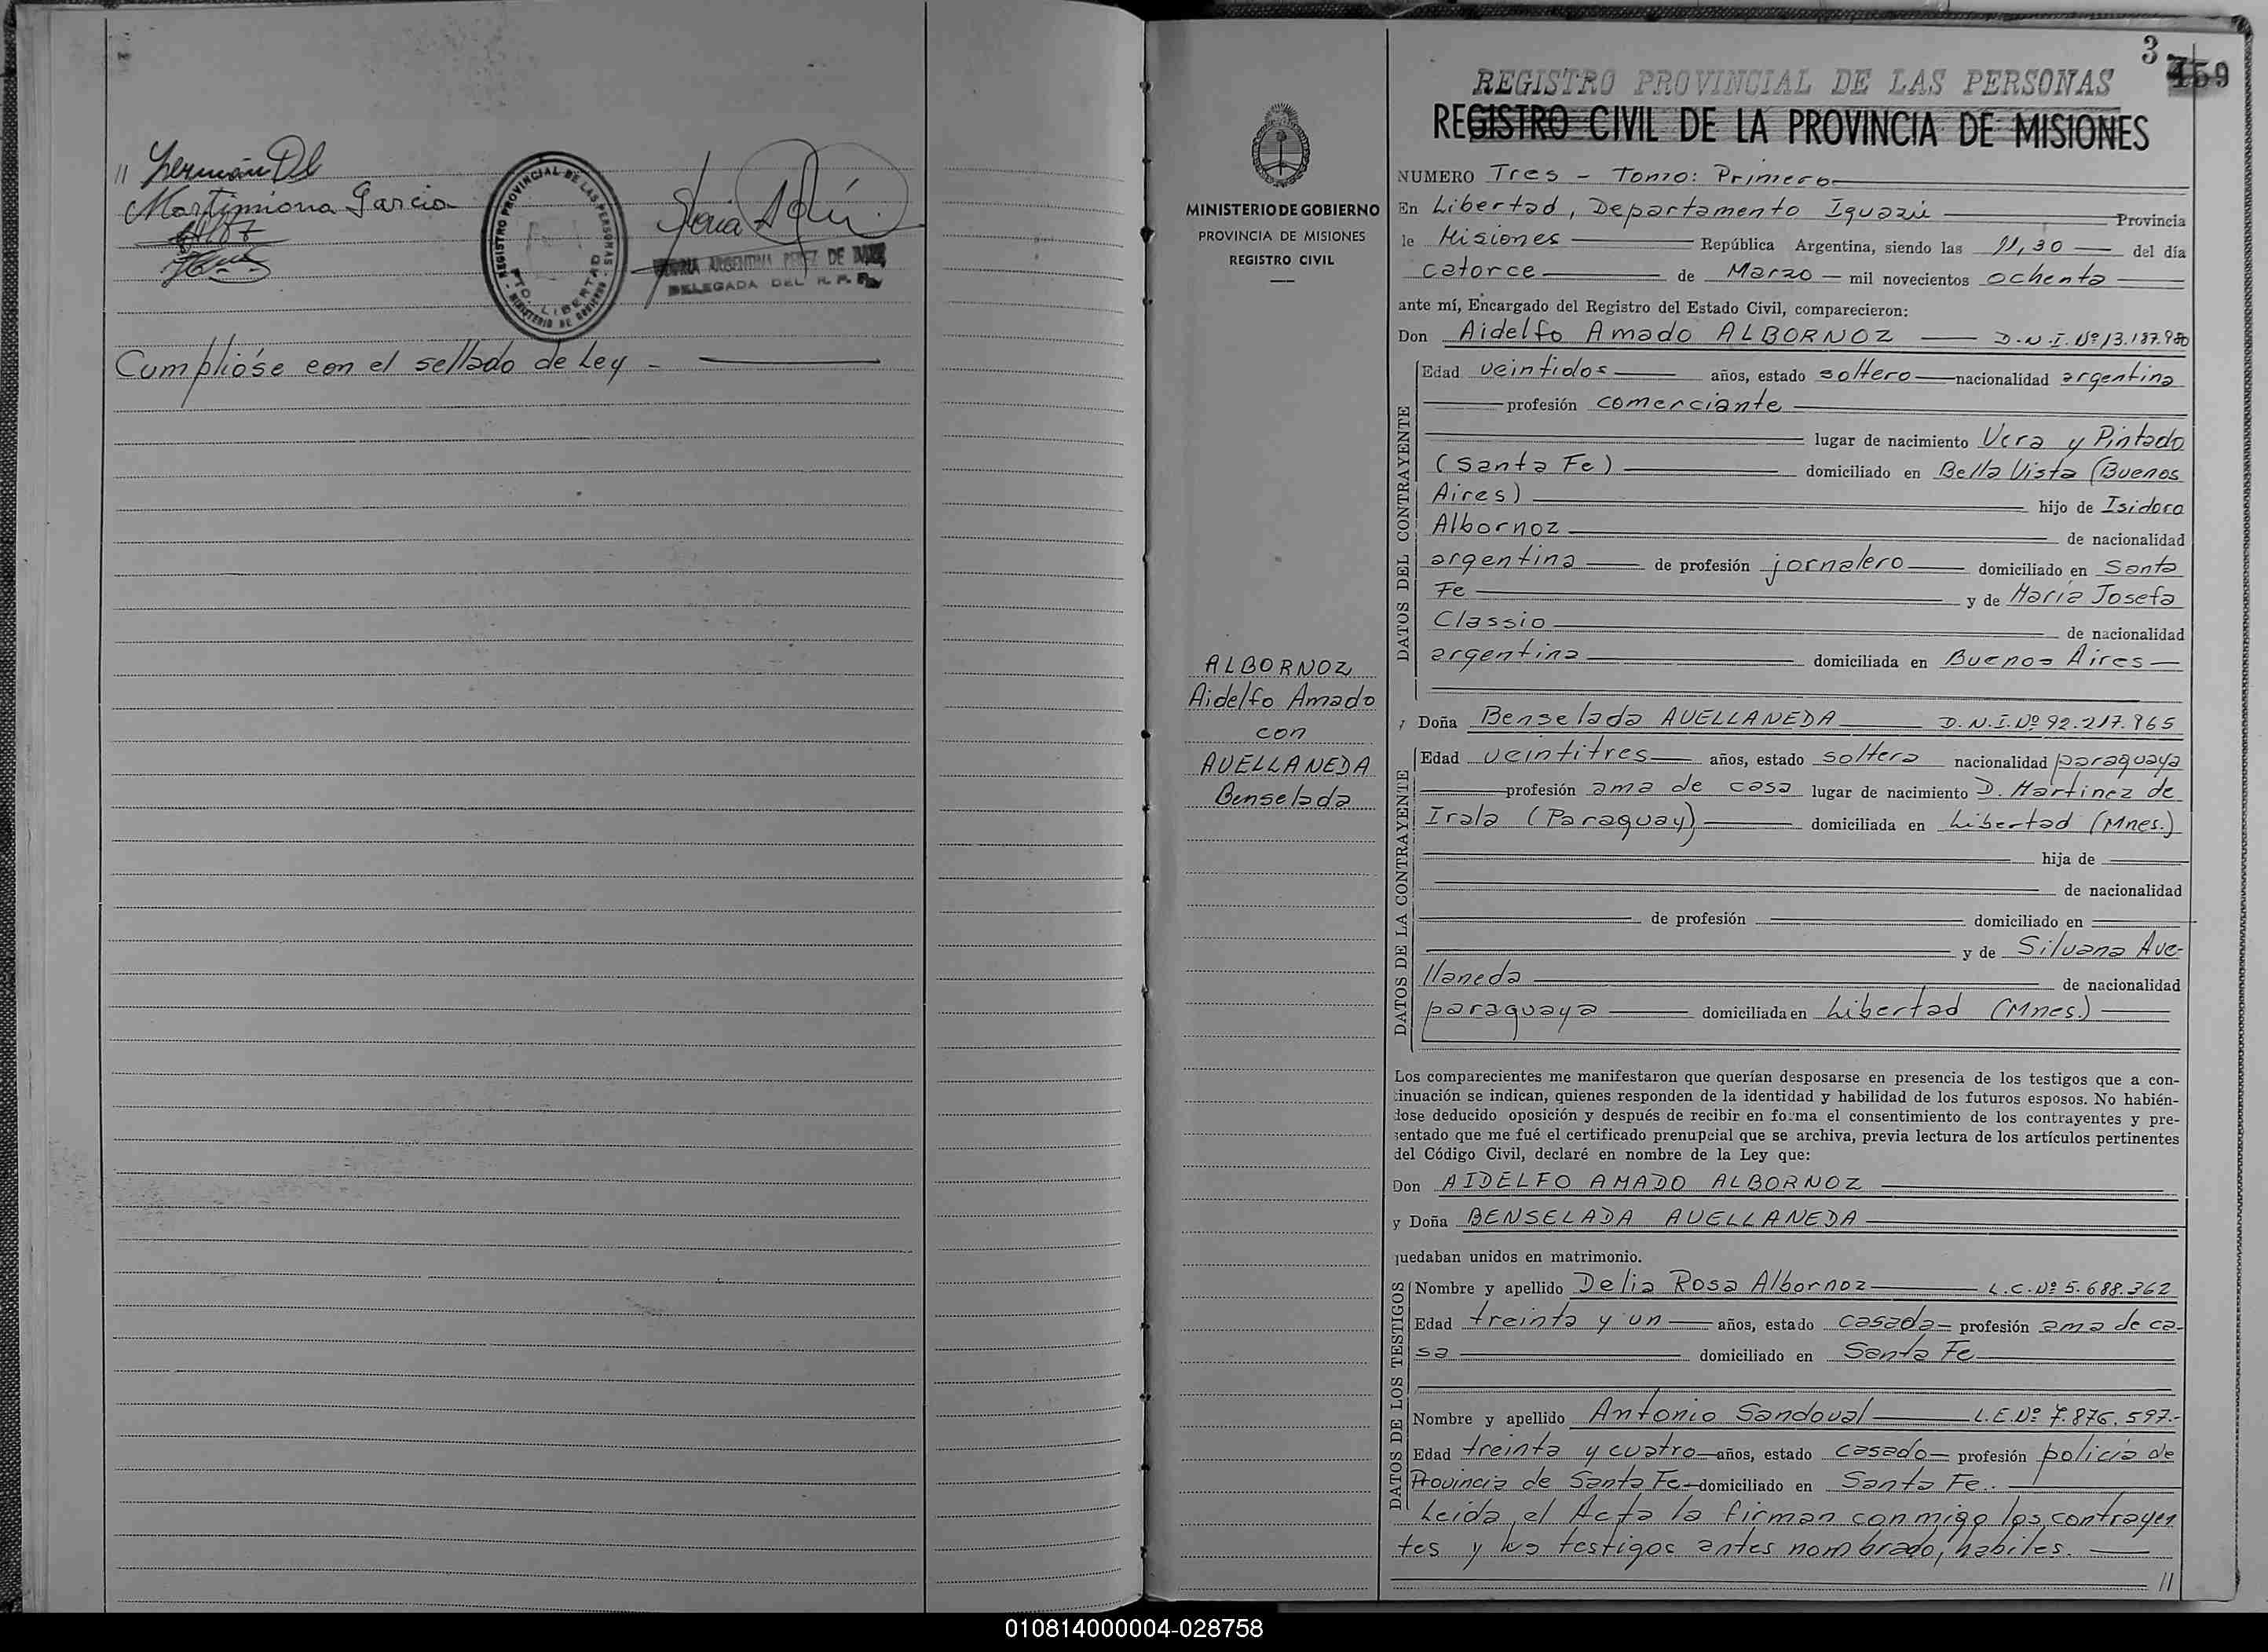 " Hermán Dl
Martimiana Garcia
REGISTRO PROVINCIAL DE LAS PERSONAS
PTO. LIBERTAD
- MINISTERIO DE GOBIERNO -
ARGENTINA PEREZ DE
DELEGADA DEL R. P. P.
Cumplióse con el sellado de Ley -
MINISTERIO DE GOBIERNO
PROVINCIA DE MISIONES
REGISTRO CIVIL
ALBORNOZ
Aidelfo Amado
con
AVELLANEDA
Benselada
3
159
REGISTRO PROVINCIAL DE LAS PERSONAS
REGISTRO CIVIL DE LA PROVINCIA DE MISIONES
NUMERO Tres - Tomo: Primero
En Libertad, Departamento Iguazú Provincia
le Misiones República Argentina, siendo las 11,30 del día
catorce de Marzo mil novecientos ochenta
ante mí, Encargado del Registro del Estado Civil, comparecieron:
Don Aidelfo Amado ALBORNOZ D.N.I. Nº 13.187.980
DATOS DEL CONTRAYENTE
Edad veintidos años, estado soltero nacionalidad argentina
profesión comerciante
lugar de nacimiento Vera y Pintado
(Santa Fe) domiciliado en Bella Vista (Buenos
Aires) hijo de Isidoro
Albornoz de nacionalidad
argentina de profesión jornalero domiciliado en Santa
Fe y de María Josefa
Classio de nacionalidad
argentina domiciliada en Buenos Aires
y Doña Benselada AVELLANEDA D.N.I. Nº 92.217.965
DATOS DE LA CONTRAYENTE
Edad veintitres años, estado soltera nacionalidad paraguaya
profesión ama de casa lugar de nacimiento D. Martinez de
Irala (Paraguay) domiciliada en Libertad (Mnes.)
hija de
de nacionalidad
de profesión domiciliado en
y de Silvana Ave-
llaneda de nacionalidad
paraguaya domiciliada en Libertad (Mnes.)
Los comparecientes me manifestaron que querían desposarse en presencia de los testigos que a con-
tinuación se indican, quienes responden de la identidad y habilidad de los futuros esposos. No habién-
dose deducido oposición y después de recibir en forma el consentimiento de los contrayentes y pre-
sentado que me fué el certificado prenupcial que se archiva, previa lectura de los artículos pertinentes
del Código Civil, declaré en nombre de la Ley que:
Don AIDELFO AMADO ALBORNOZ
y Doña BENSELADA AVELLANEDA
quedaban unidos en matrimonio.
DATOS DE LOS TESTIGOS
Nombre y apellido Delia Rosa Albornoz L.C. Nº 5.688.362
Edad treinta y un años, estado casada profesión ama de ca-
sa domiciliado en Santa Fe
Nombre y apellido Antonio Sandoval L.E. Nº 7.876.597.-
Edad treinta y cuatro años, estado casado profesión policía de
Provincia de Santa Fe domiciliado en Santa Fe.
Leida el Acta la firman conmigo los contrayen
tes y los testigos antes nombrado, habiles.
//
010814000004-028758